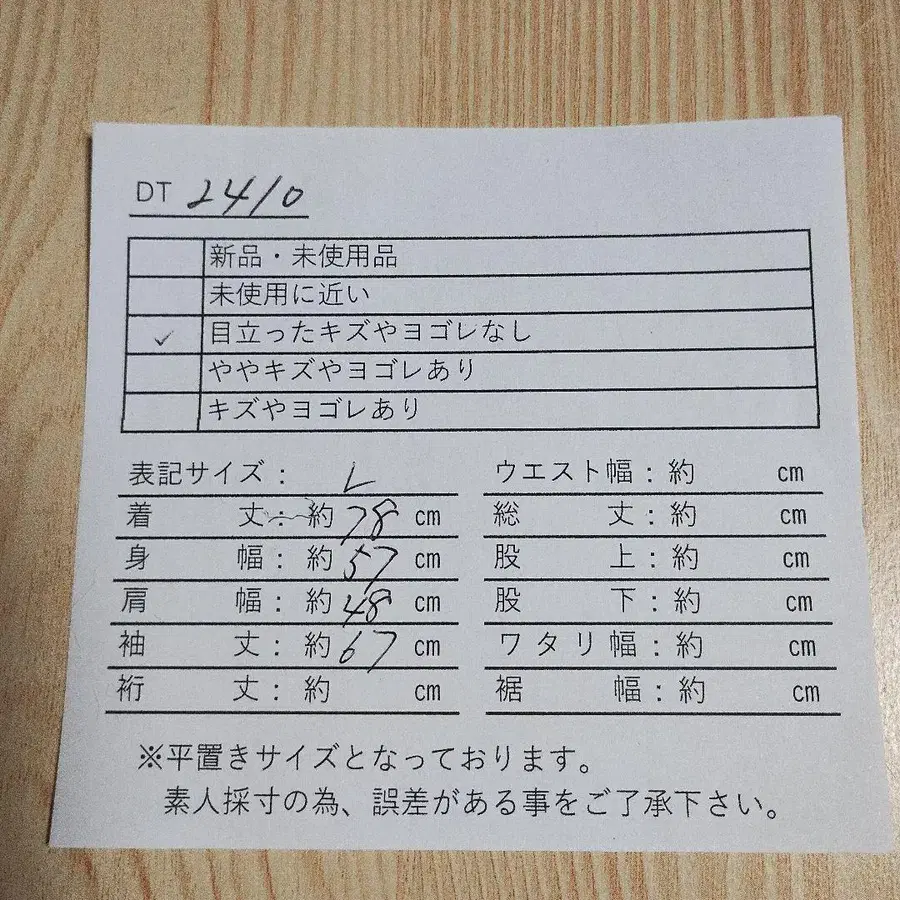 DT 2410
新品・未使用品
未使用に近い
✓ 目立ったキズやヨゴレなし
ややキズやヨゴレあり
キズやヨゴレあり
表記サイズ: L
着丈:約78cm
身幅:約57cm
肩幅:約48cm
袖丈:約67cm
裄丈:約 cm
ウエスト幅:約 cm
総丈:約 cm
股上:約 cm
股下:約 cm
ワタリ幅:約 cm
裾幅:約 cm
※平置きサイズとなっております。
素人採寸の為、誤差がある事をご了承下さい。